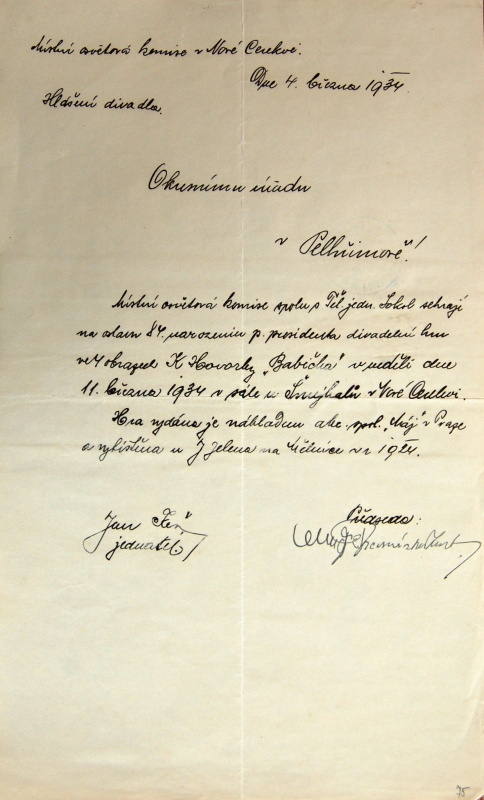 Místní osvětová komise v Nové Cerekvi.
Dne 4. března 1934.
Hlášení divadla.
Okresnímu úřadu
v Pelhřimově!
Místní osvětová komise spolu s Těl. jedn. Sokol sehrají
na oslavu 84. narozenin p. presidenta divadelní hru
ve 4 obrazech K. Hovorky „Babička" v neděli dne
11. března 1934 v sále u Šmejkalů v Nové Cerekvi.
Hra vydána je nákladem akc. spol. „Máj" v Praze
a vytištěna u J. Jelena na Mělníce v r. 1924.
Jan
jednatel
Předseda:
75